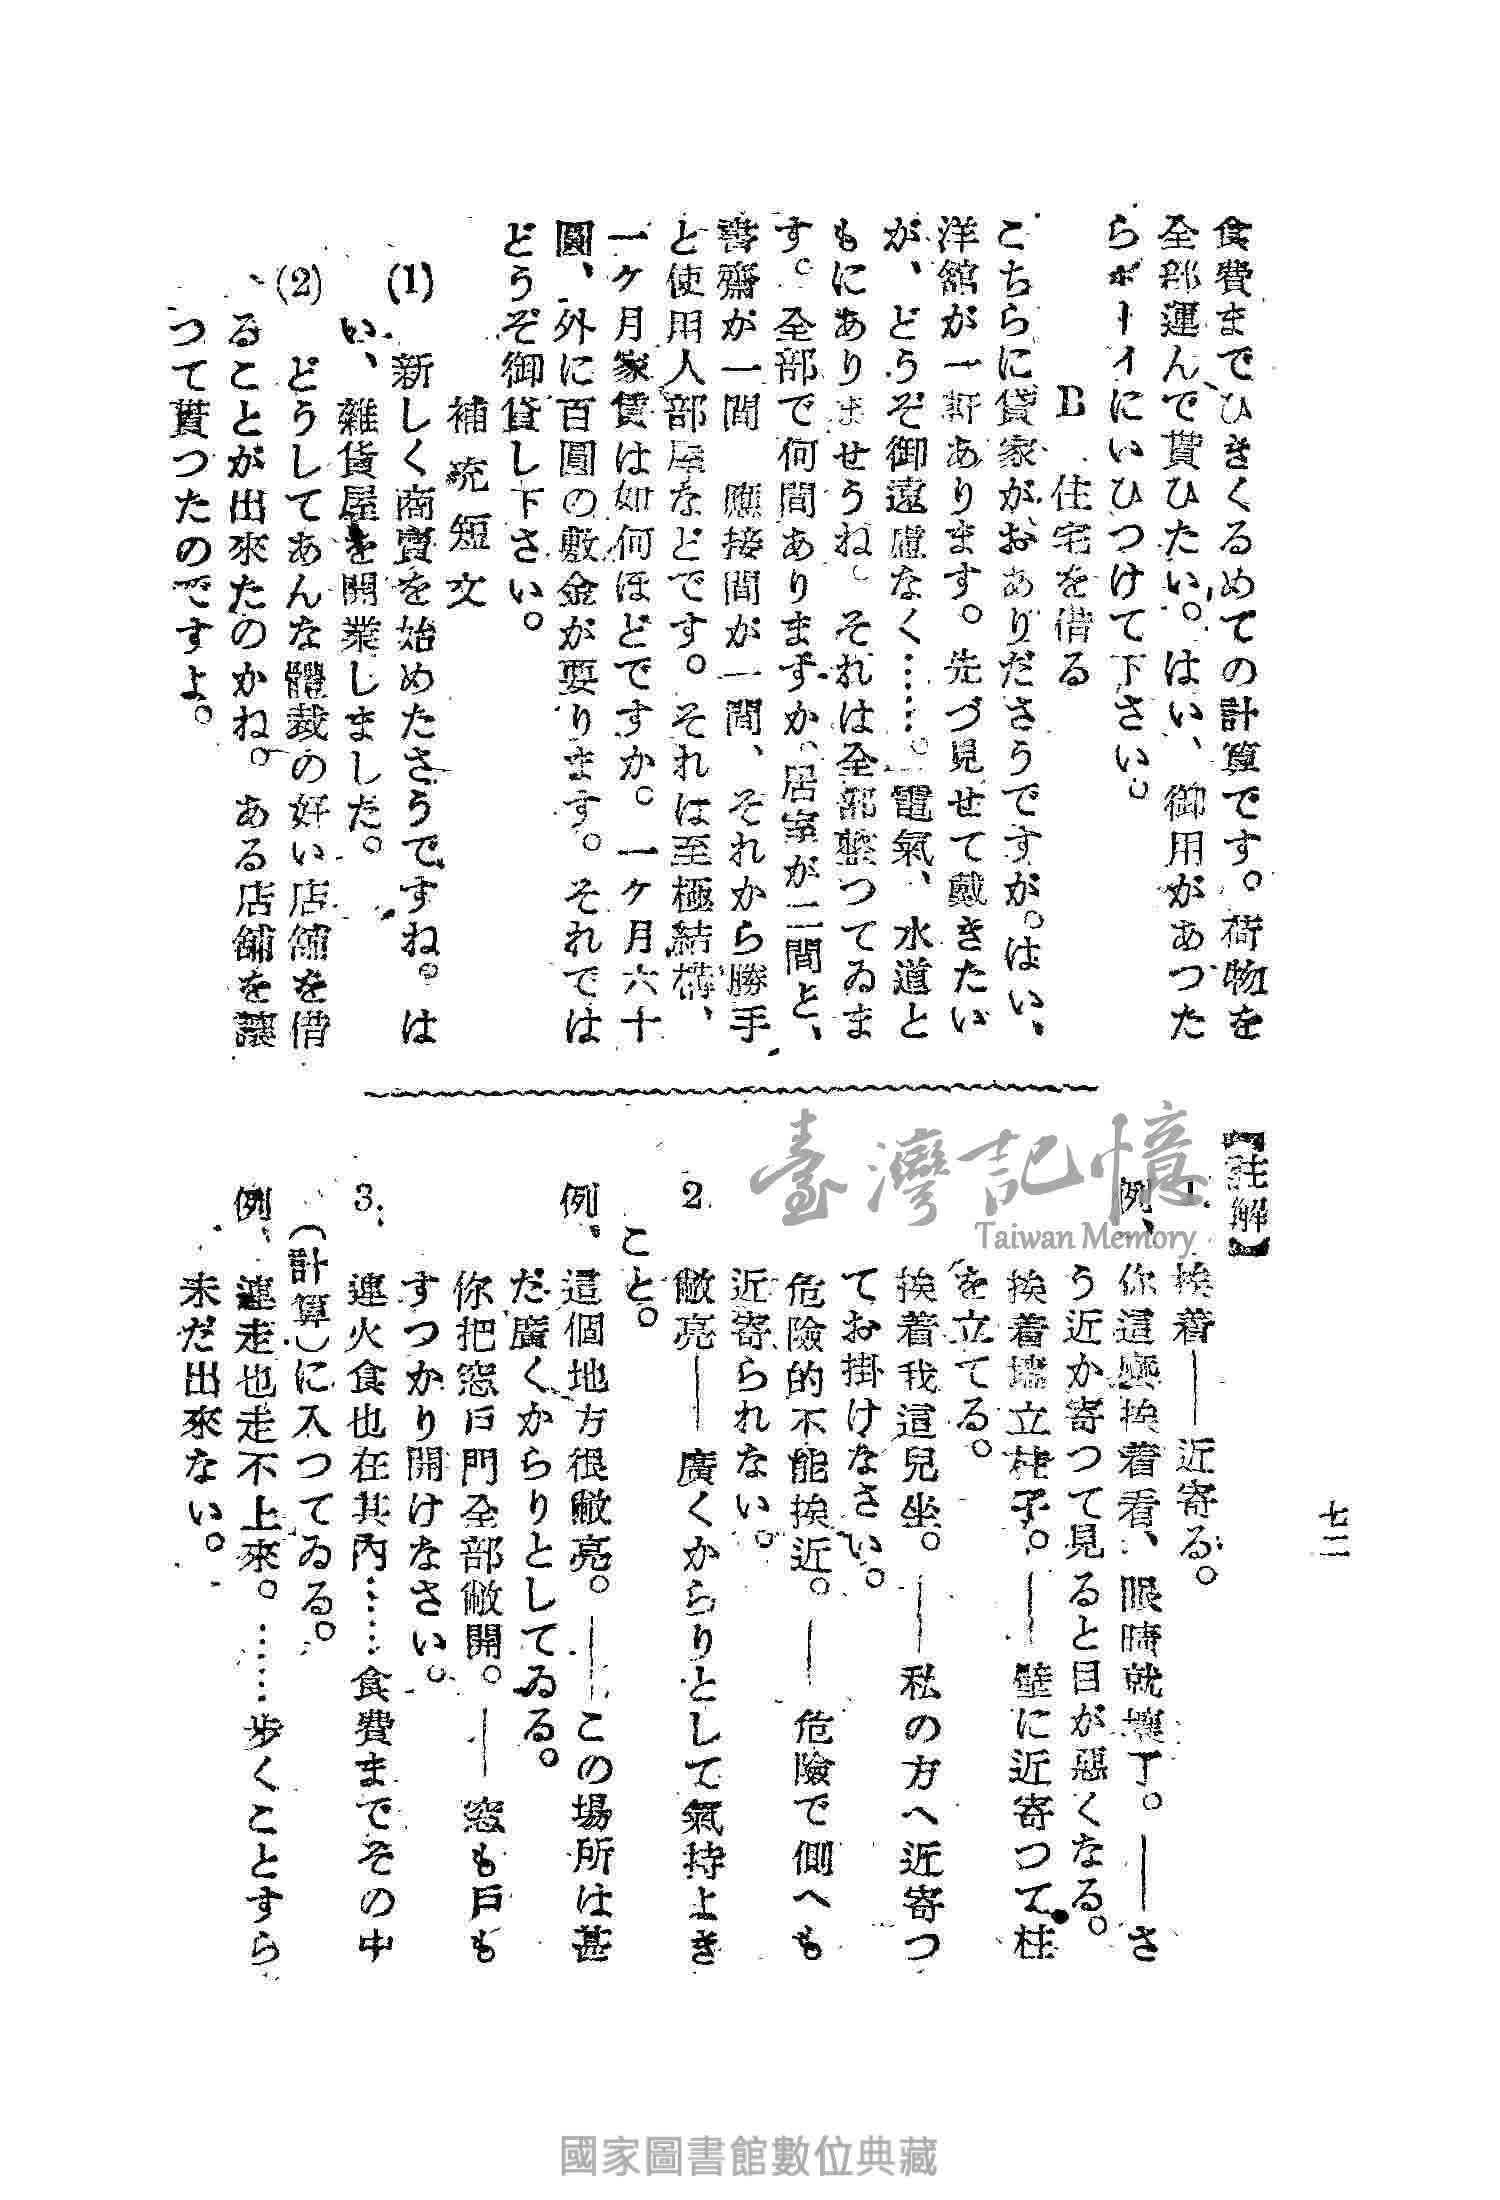 食費までひきくるめての計算です。荷物を
全部運んで貰ひたい。はい、御用があつた
らボーイにいひつけて下さい。
B 住宅を借る
こちらに貸家がおありださうですが。はい、
洋館が一軒あります。先づ見せて戴きたい
が、どうぞ御遠慮なく……。電氣、水道と
もにありませうね。それは全部整つてゐま
す。全部で何間ありますか。居室が二間と、
書齋が一間 應接間が一間、それから勝手
と使用人部屋などです。それは至極結構、
一ケ月家賃は如何ほどですか。一ケ月六十
圓、外に百圓の敷金が要ります。それでは
どうぞ御貸し下さい。
補充短文
(1) 新しく商賣を始めたさうですね。は
い、雜貨屋を開業しました。
(2) どうしてあんな體裁の好い店舖を借
ることが出來たのかね。ある店舖を讓
つて貰つたのですよ。
七二
【註解】
1. 挨着——近寄る。
例、你這麽挨着看、眼睛就壞了。——さ
う近か寄つて見ると目が惡くなる。
挨着墻立柱子。——壁に近寄つて柱
を立てる。
挨着我這兒坐。——私の方へ近寄つ
てお掛けなさい。
危險的不能挨近。——危險で側へも
近寄られない。
2. 敞亮——廣くからりとして氣持よき
こと。
例、這個地方很敞亮。——この場所は甚
だ廣くからりとしてゐる。
你把窓戸門全部敞開。——窓も戸も
すつかり開けなさい。
3. 連火食也在其內……食費までその中
(計算)に入つてゐる。
例、連走也走不上來。……歩くことすら
未だ出來ない。
臺灣記憶
Taiwan Memory
國家圖書館數位典藏